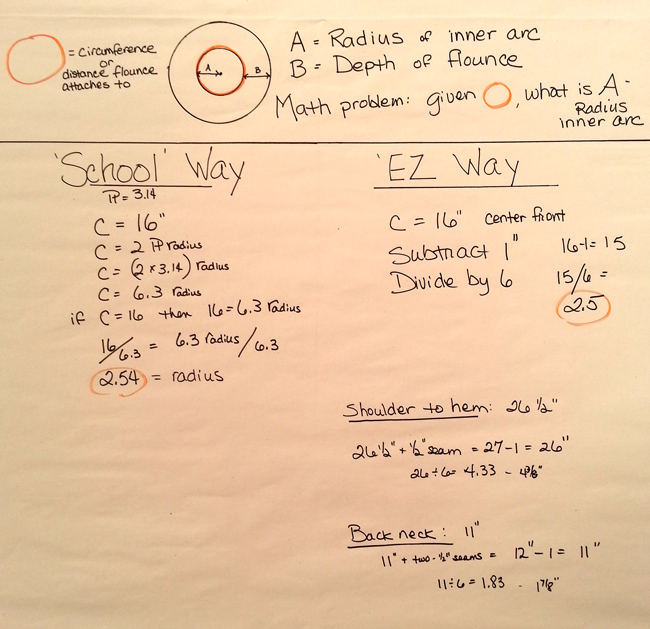 = Circumference
or
distance flounce
attaches to
A
B
A = Radius of inner arc
B = Depth of flounce
Math problem: given , what is A-
Radius
inner arc
'School' Way
π = 3.14
C = 16"
C = 2 π radius
C = (2 x 3.14) radius
C = 6.3 radius
if C = 16 then 16 = 6.3 radius
16/6.3 = 6.3 radius/6.3
2.54 = radius
'EZ Way
C = 16" center front
Subtract 1" 16-1= 15
Divide by 6 15/6 =
2.5
Shoulder to hem: 26 1/2"
26 1/2" + 1/2" seam = 27-1 = 26"
26÷6= 4.33 - 4 3/8"
Back neck: 11"
11" + two - 1/2" seams = 12"-1= 11"
11÷6=1.83 - 1 7/8"